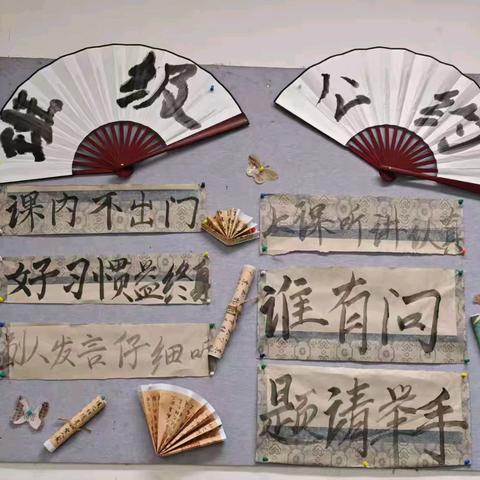 班级
公约
课内不出门
好习惯益终身
人发言仔细听
上课听讲认真
谁有问
题请举手